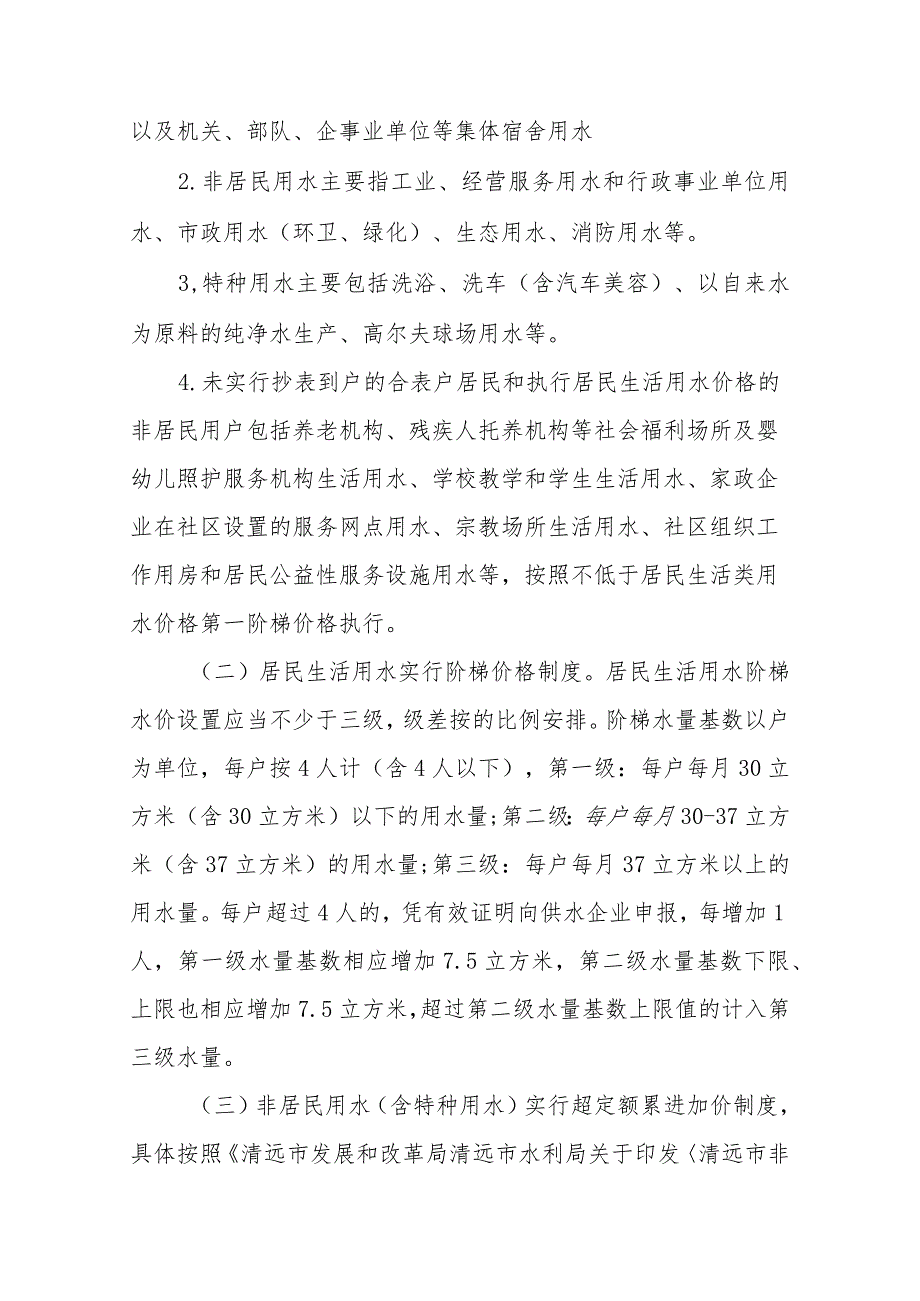 以及机关、部队、企事业单位等集体宿舍用水
2.非居民用水主要指工业、经营服务用水和行政事业单位用
水、市政用水（环卫、绿化）、生态用水、消防用水等。
3,特种用水主要包括洗浴、洗车（含汽车美容）、以自来水
为原料的纯净水生产、高尔夫球场用水等。
4.未实行抄表到户的合表户居民和执行居民生活用水价格的
非居民用户包括养老机构、残疾人托养机构等社会福利场所及婴
幼儿照护服务机构生活用水、学校教学和学生生活用水、家政企
业在社区设置的服务网点用水、宗教场所生活用水、社区组织工
作用房和居民公益性服务设施用水等，按照不低于居民生活类用
水价格第一阶梯价格执行。
（二）居民生活用水实行阶梯价格制度。居民生活用水阶梯
水价设置应当不少于三级,级差按的比例安排。阶梯水量基数以户
为单位，每户按4人计（含4人以下），第一级：每户每月30立
方米（含30立方米）以下的用水量;第二级:每户每月30-37立方
米（含37立方米）的用水量;第三级：每户每月37立方米以上的
用水量。每户超过4人的，凭有效证明向供水企业申报，每增加1
人，第一级水量基数相应增加7.5立方米，第二级水量基数下限、
上限也相应增加7.5立方米,超过第二级水量基数上限值的计入第
三级水量。
（三）非居民用水（含特种用水）实行超定额累进加价制度，
具体按照《清远市发展和改革局清远市水利局关于印发〈清远市非